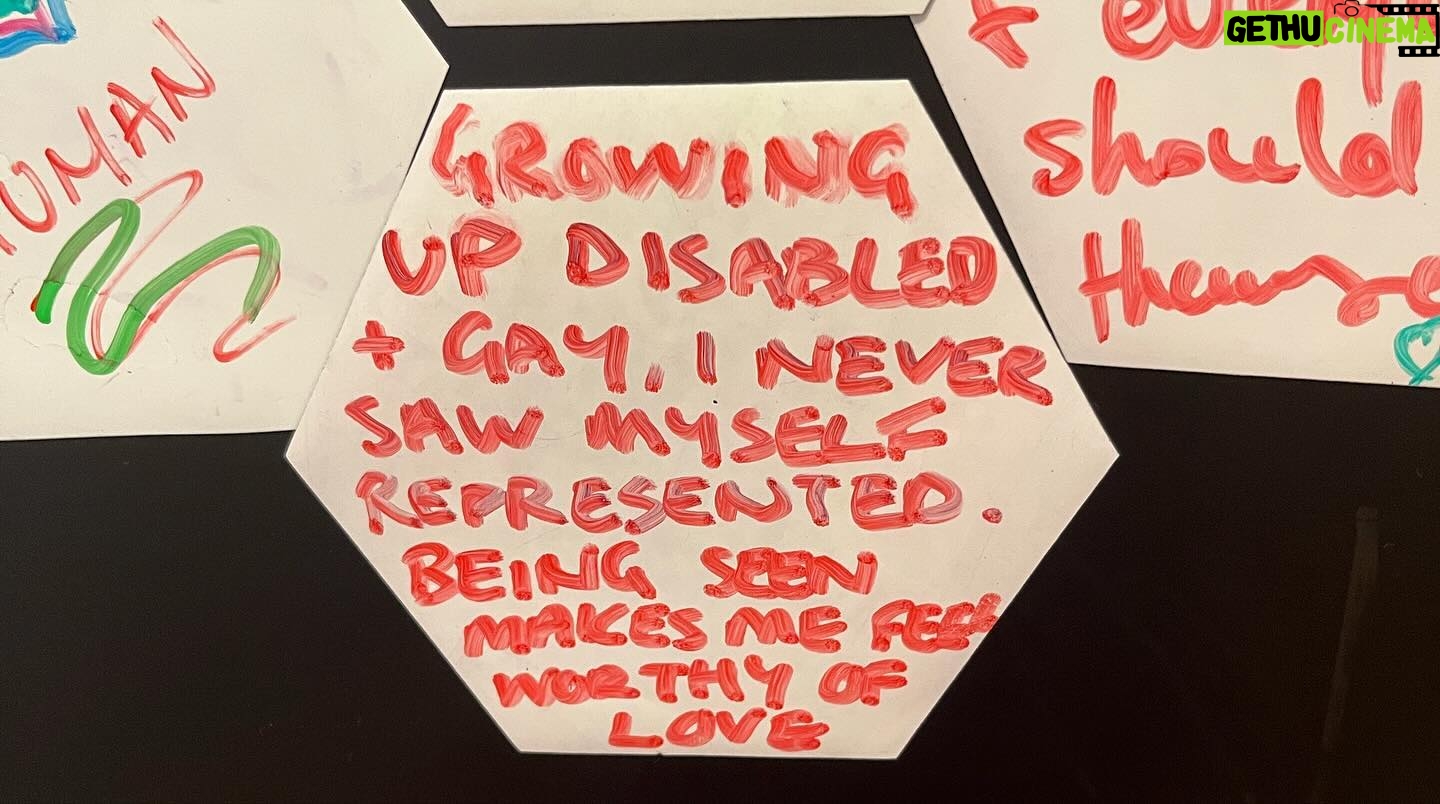 UMAN
GROWING
UP DISABLED
+ GAY, I NEVER
SAW MYSELF
REPRESENTED.
BEING SEEN
MAKES ME FEEL
WORTHY OF
LOVE
+
should
GETHUCINEMA